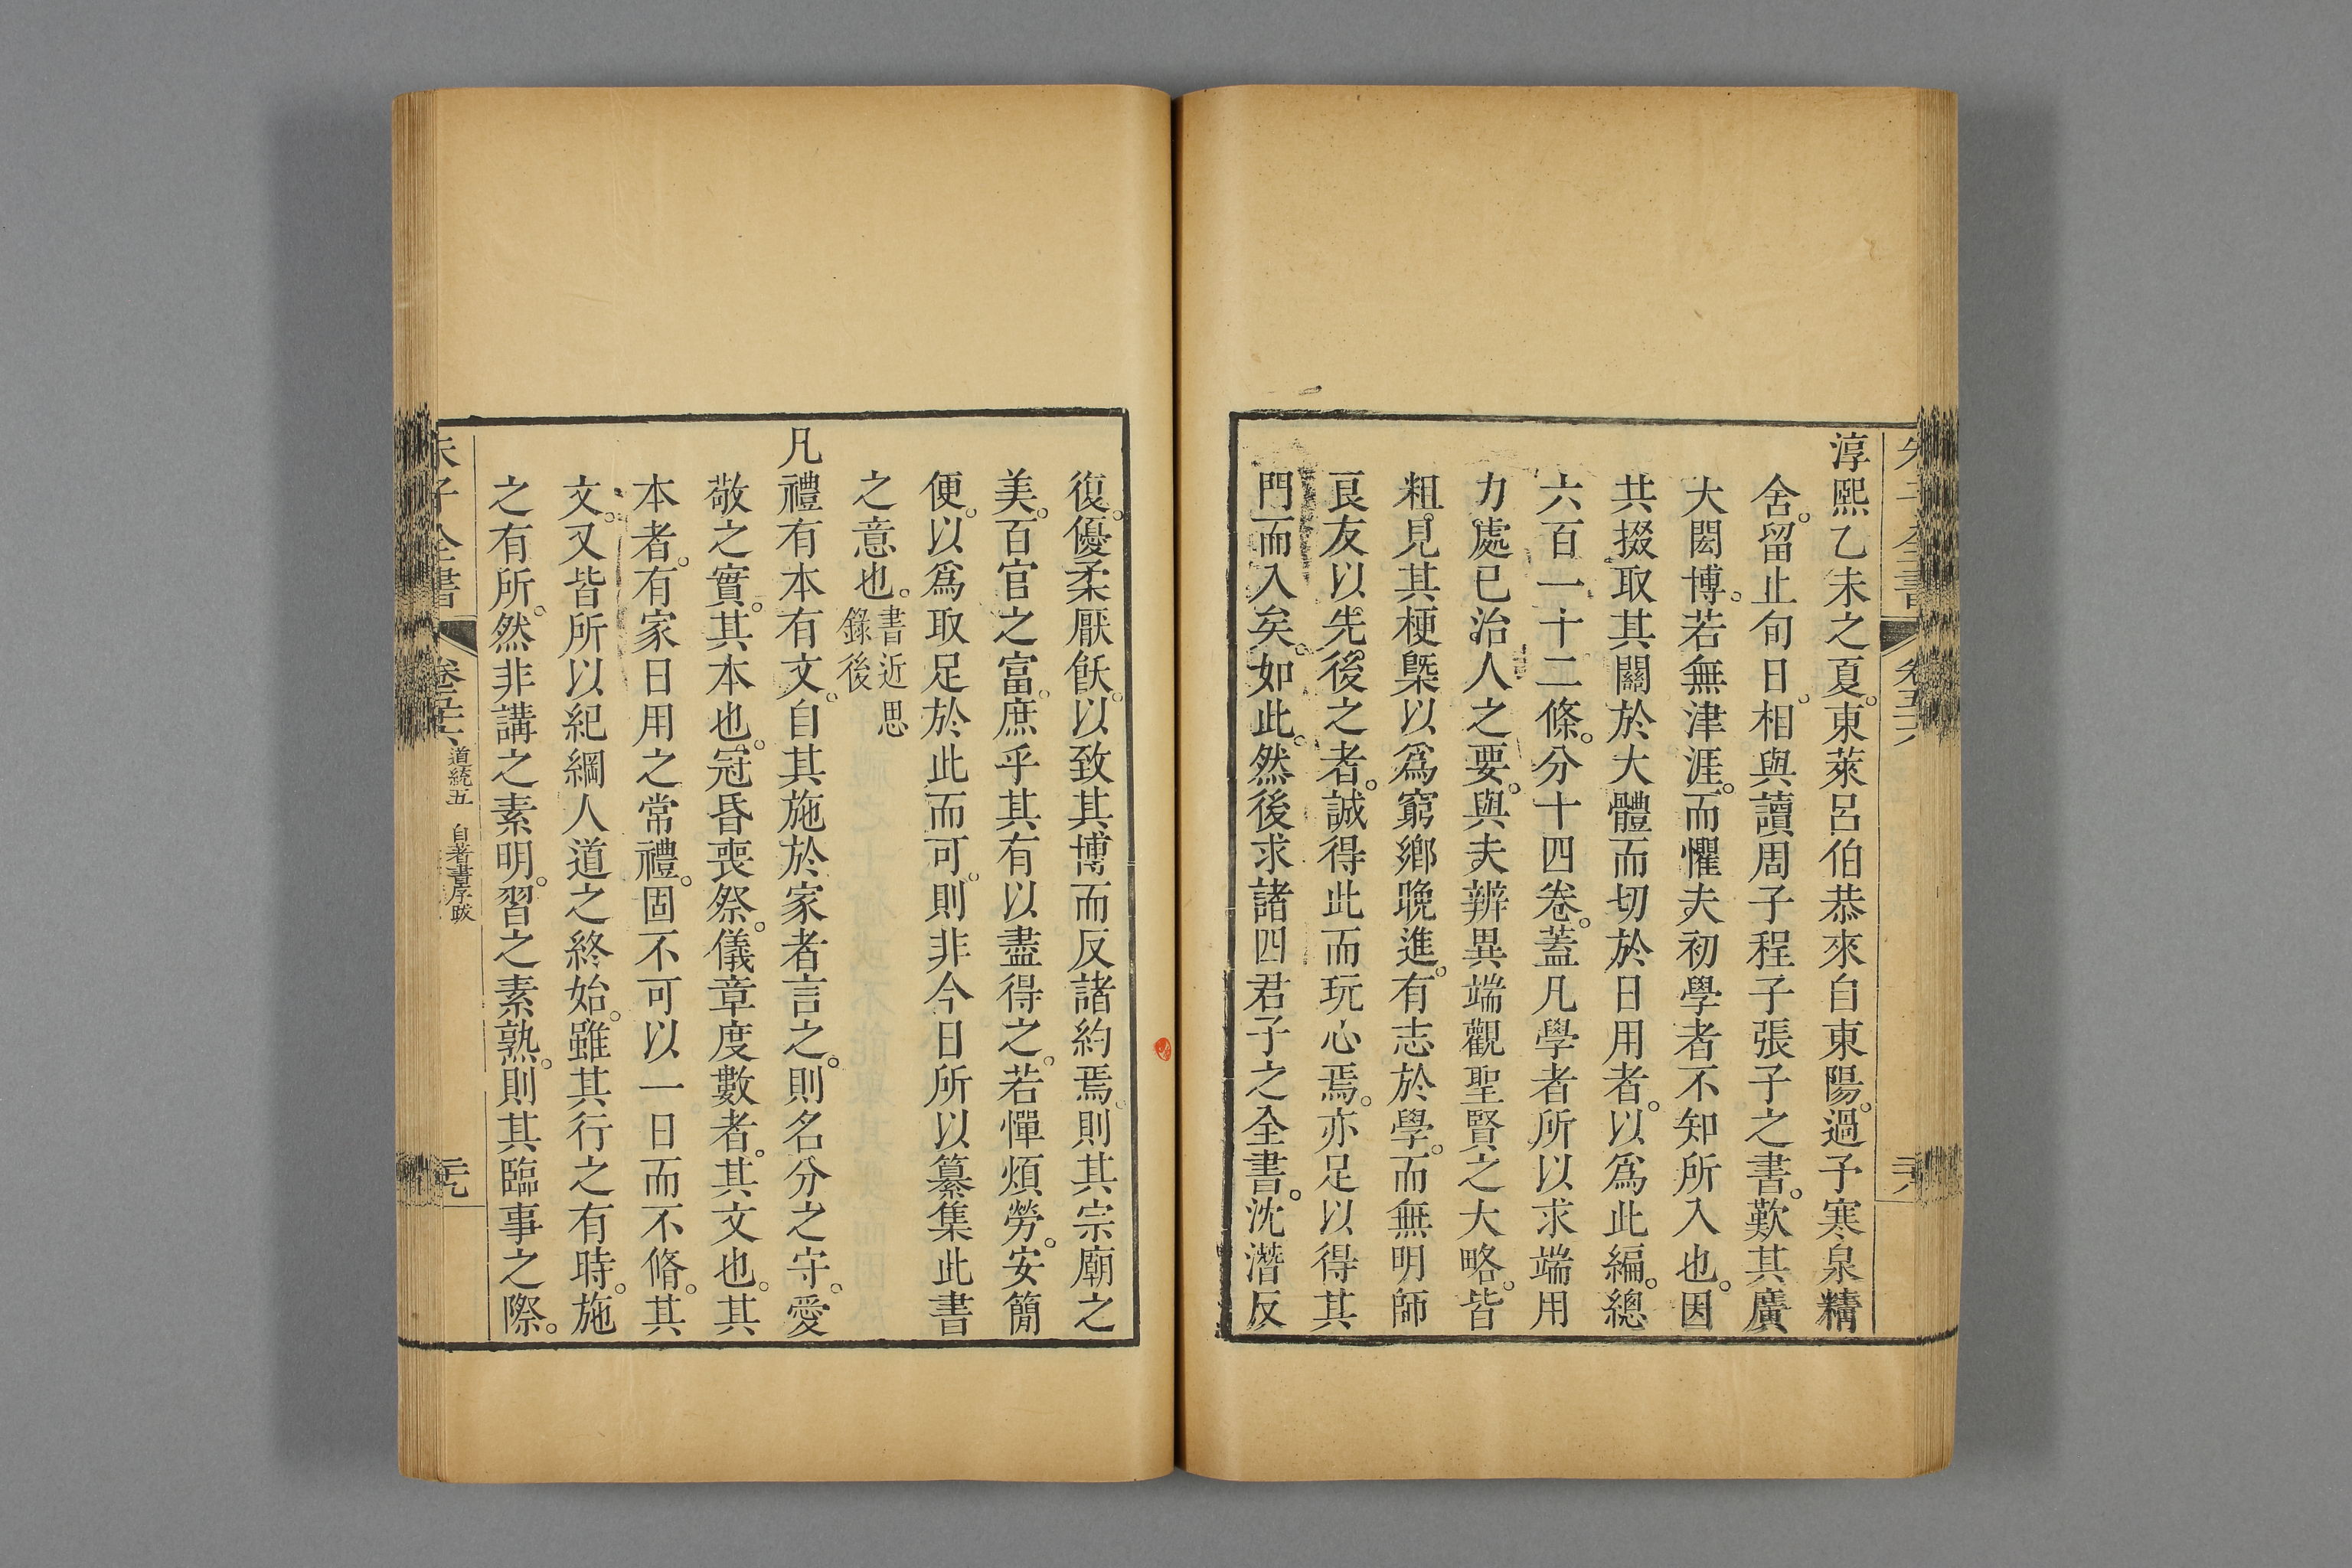 朱子全書 卷五十六 二十八
淳熙乙未之夏。東萊呂伯恭來自東陽。過予寒泉精
舍。留止旬日。相與讀周子程子張子之書。歎其廣
大閎博。若無津涯。而懼夫初學者不知所入也。因
共掇取其關於大體而切於日用者。以爲此編。總
六百一十二條。分十四卷。蓋凡學者所以求端用
力處已治人之要。與夫辨異端觀聖賢之大略。皆
粗見其梗槩以爲窮鄉晚進。有志於學。而無明師
良友以先後之者。誠得此而玩心焉。亦足以得其
門而入矣。如此。然後求諸四君子之全書。沈潛反
復。優柔厭飫。以致其博而反諸約焉。則其宗廟之
美。百官之富。庶乎其有以盡得之。若憚煩勞。安簡
便。以爲取足於此而可。則非今日所以纂集此書
之意也。書近思錄後
凡禮有本有文。自其施於家者言之。則名分之守。愛
敬之實。其本也。冠昏喪祭。儀章度數者。其文也。其
本者。有家日用之常禮。固不可以一日而不脩。其
文。又皆所以紀綱人道之終始。雖其行之有時。施
之有所。然非講之素明。習之素熟。則其臨事之際。
朱子全書 卷五十六 道統五 自著書序跋 二十九